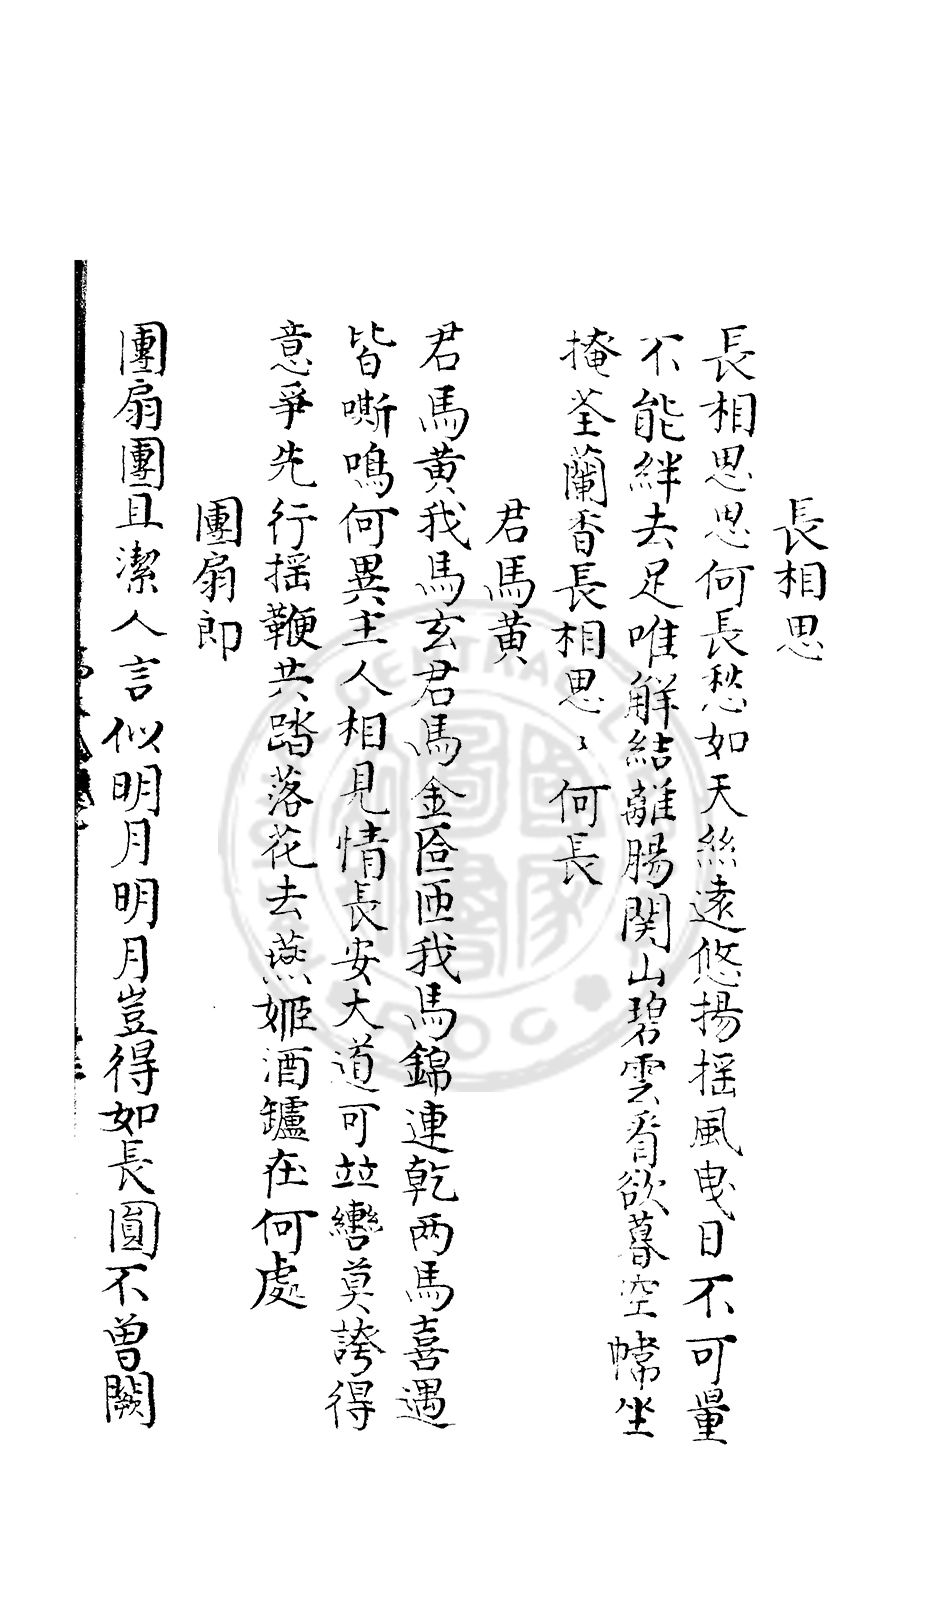 長相思
長相思思何長愁如天絲遠悠揚揺風曳日不可量
不能絆去足唯解結離腸関山碧雲看欲暮空幃坐
掩荃蘭香長相思〻何長
君馬黄
君馬黄我馬玄君馬金匼匝我馬錦連乾两馬喜遇
皆嘶鳴何異主人相見情長安大道可竝轡莫誇得
意爭先行揺鞭共踏落花去燕姬酒鑪在何處
團扇郎
團扇團且潔人言似明月明月豈得如長圓不曾闕